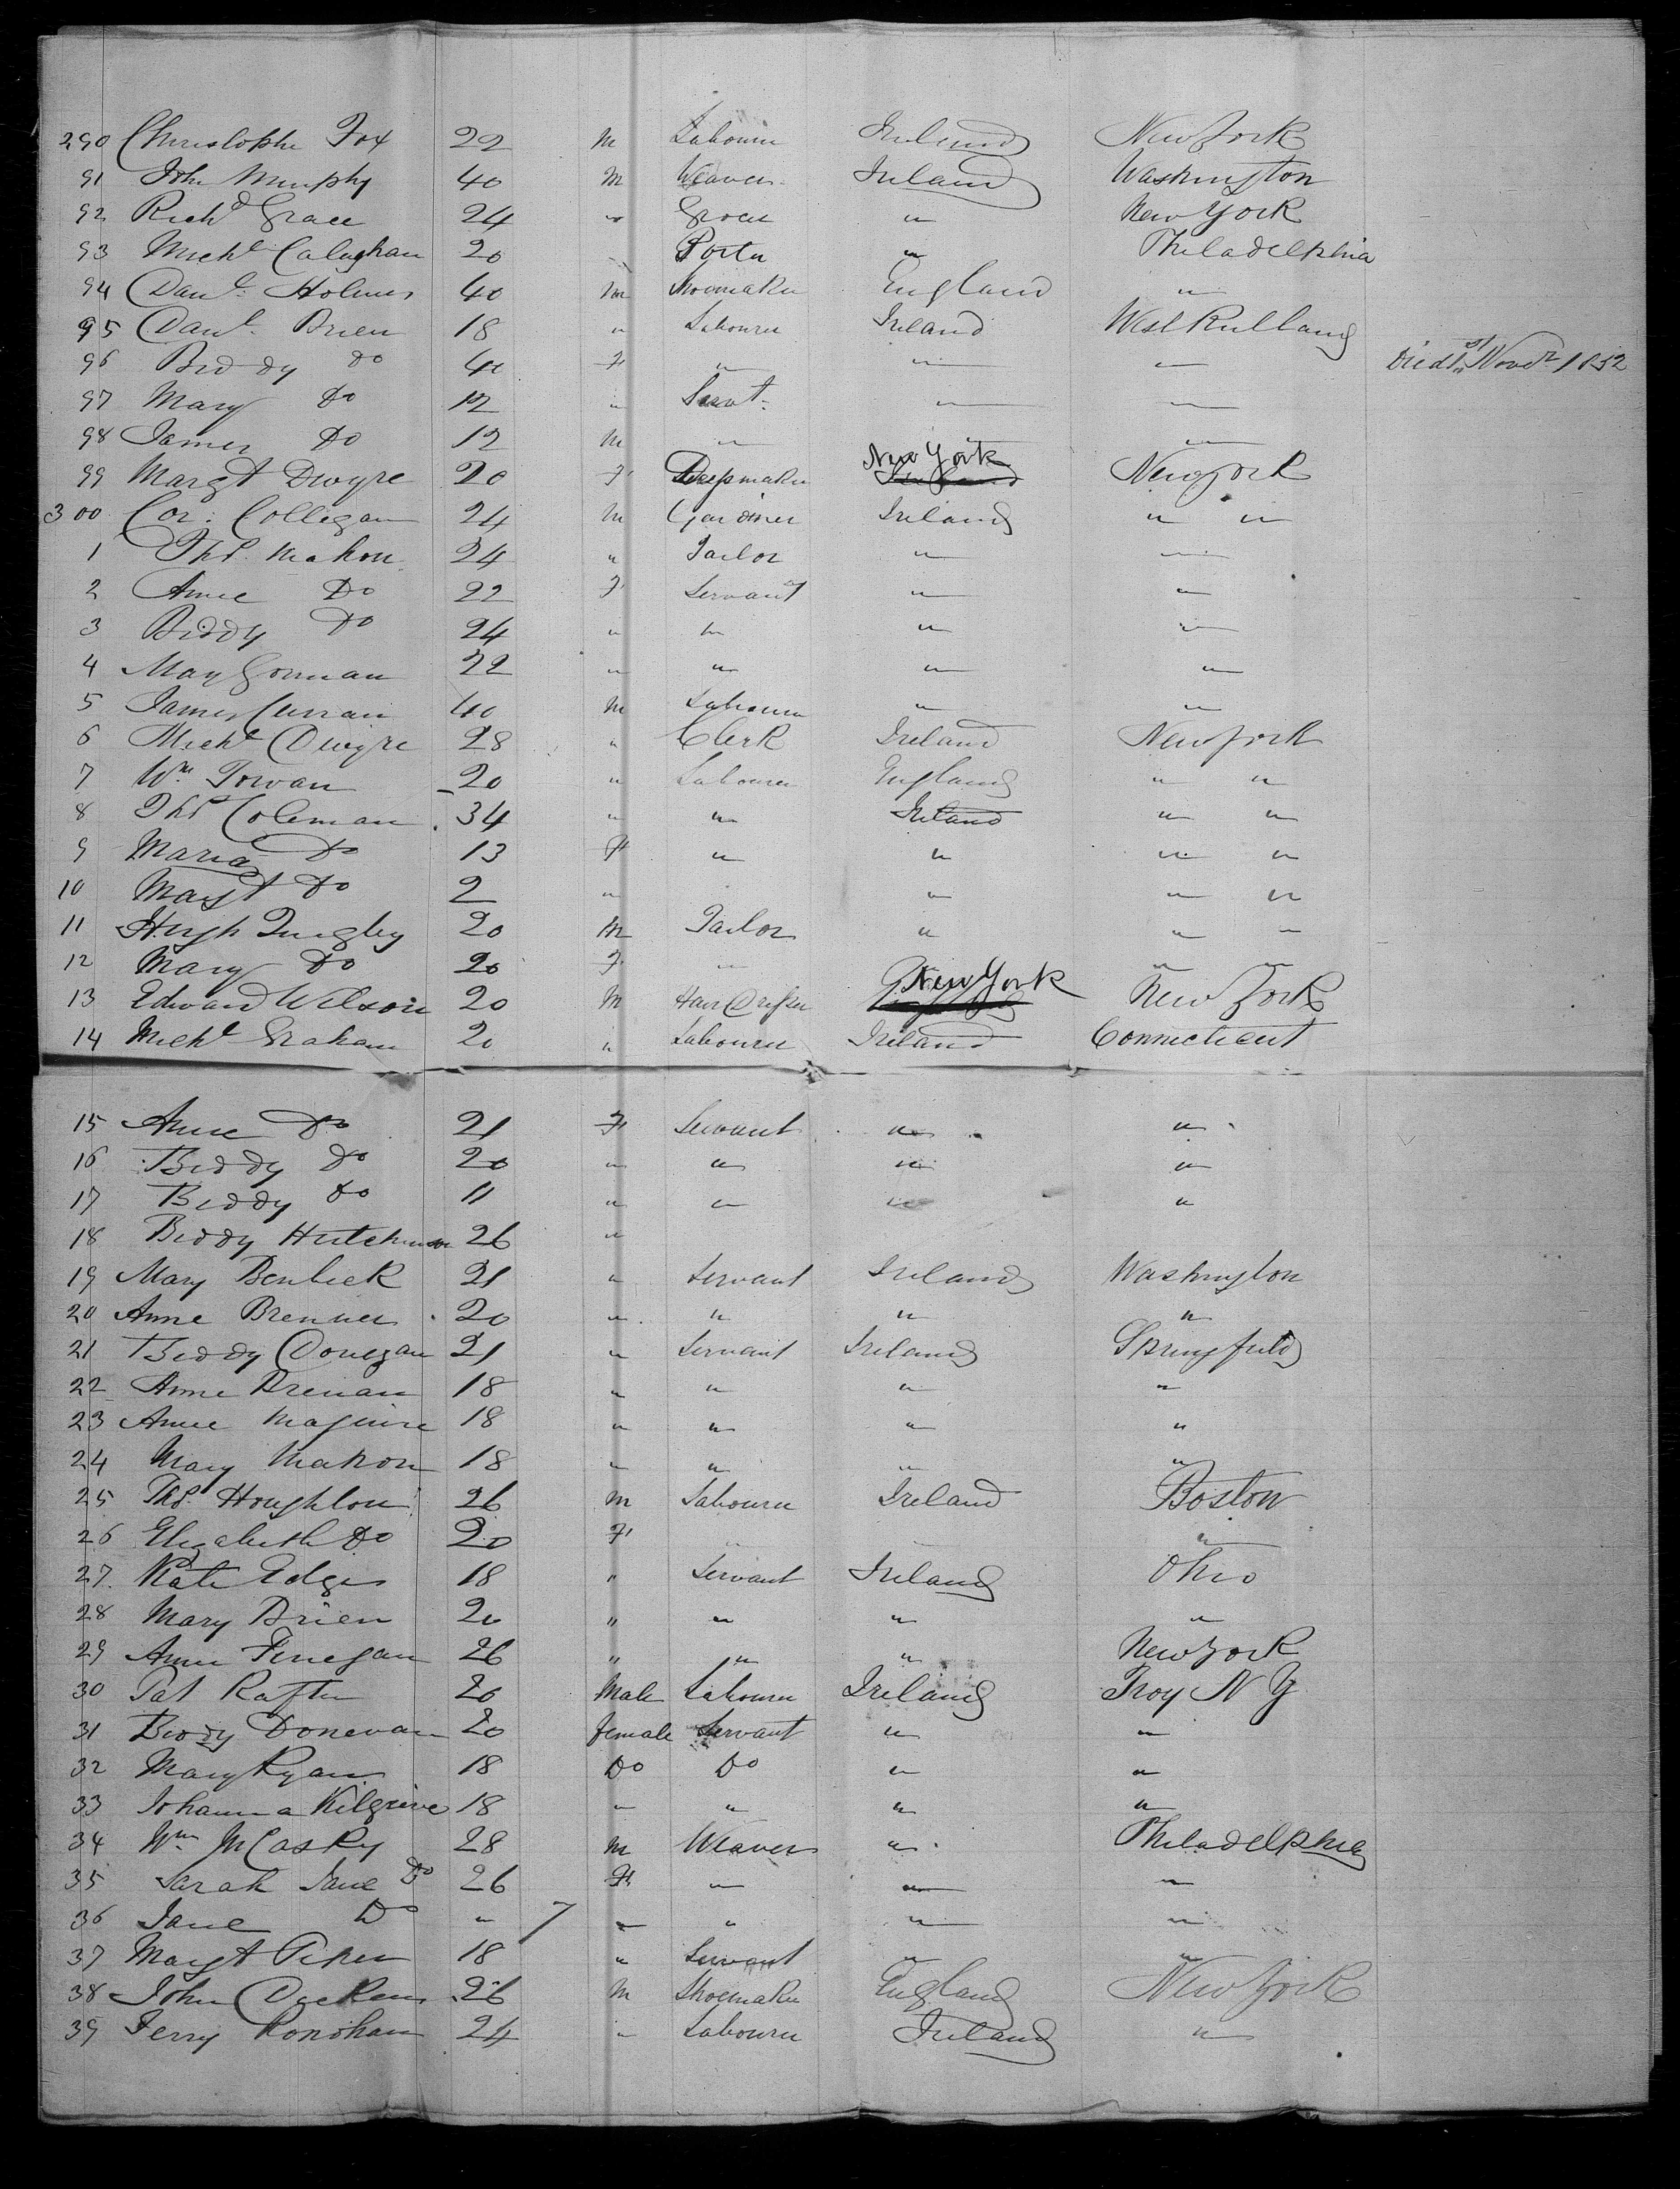 290 Christophr Fox 22 m Labourer Ireland New York
91 John Murphy 40 m Weaver Ireland Washington
92 Richd Grace 24 " Grocer " New York
93 Michl Calaghan 20 " Porter " Philadelphia
94 Danl. Holmes 40 m Shoemaker England "
95 Danl. Brien 18 " Labourer Ireland West Rutland
96 Biddy Do 40 F " " " Died 1st Novr 1852
97 Mary Do 12 " Servt. " "
98 James Do 12 m " " "
99 Margt Dwyre 20 F Dressmaker New York New York
300 Cor. Collegan 24 m Gardiner Ireland " "
1 Thos. Mahon 24 " Tailor " "
2 Anne Do 22 F Servant " "
3 Biddy Do 24 " " " "
4 Mary Gorman 22 " " " "
5 James Curran 40 m Labourer " "
6 Michl Dwyre 28 " Clerk Ireland New York
7 Wm Towan 20 " Labourer England " "
8 Thos Coleman 34 " " Ireland " "
9 Maria Do 13 F " " " "
10 Margt Do 2 " " " "
11 Hugh Quigley 20 m Tailor " " "
12 Mary Do 20 F " " "
13 Edward Wilson 20 m Hair Dresser New York New York
14 Michl Graham 20 " Labourer Ireland Connecticut
15 Anne Do 21 F Servant " "
16 Biddy Do 20 " " " "
17 Biddy Do 11 " " " "
18 Biddy Hutchinson 26 "
19 Mary Benbick 21 " Servant Ireland Washington
20 Anne Brenner 20 " " " "
21 Biddy Donegan 21 " Servant Ireland Springfield
22 Anne Brenan 18 " " " "
23 Anne Maguire 18 " " " "
24 Mary Mahon 18 " " " "
25 Thos. Houghton 26 m Labourer Ireland Boston
26 Elizabeth Do 20 F " " "
27 Kate Edges 18 " Servant Ireland Ohio
28 Mary Brien 20 " " " "
29 Anne Finegan 26 " " " New York
30 Pat Rafter 20 Male Labourer Ireland Troy N Y
31 Biddy Donevan 20 female Servant " "
32 Mary Ryan 18 Do Do " "
33 Johanna Kilgrive 18 " " " "
34 Wm McCasky 28 m Weaver " Philadelphia
35 Sarah Jane Do 26 F " " "
36 Jane Do " 7 " " " "
37 Margt Piper 18 " Servant " "
38 John Dicken 26 m Shoemaker England New York
39 Jerry Honohan 24 " Labourer Ireland "